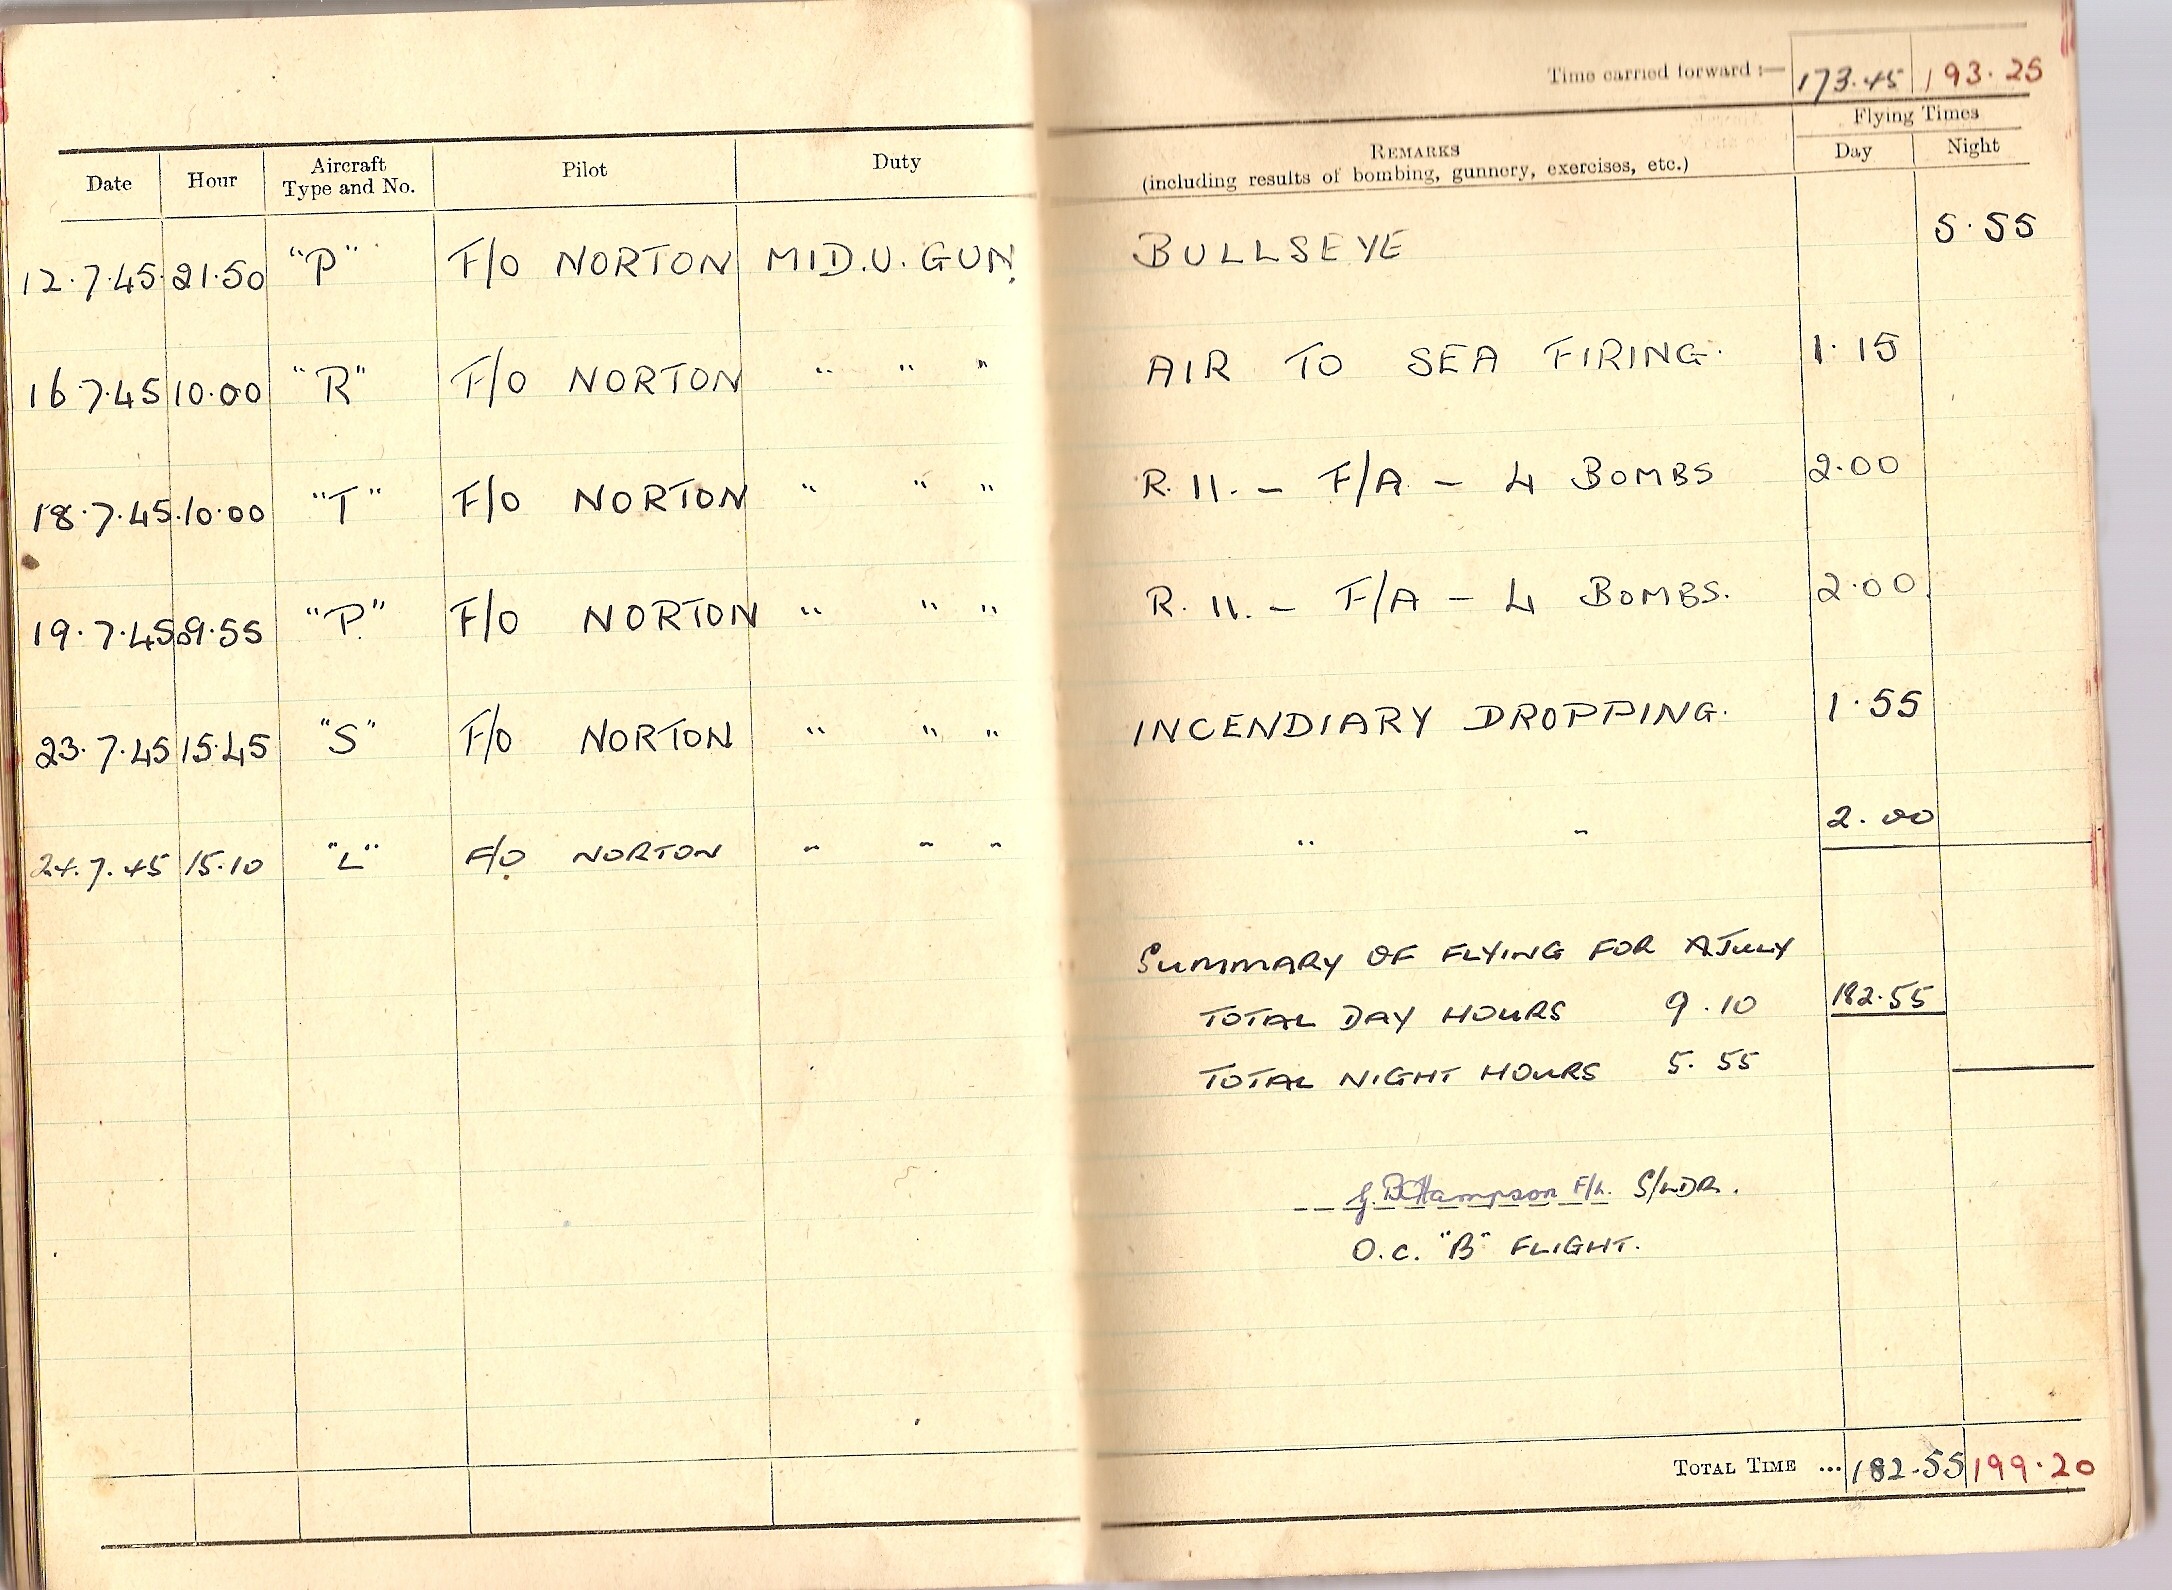 Time carried forward :— 173.45 193.25
Flying Times
Date Hour Aircraft Type and No. Pilot Duty REMARKS (including results of bombing, gunnery, exercises, etc.) Day Night
12.7.45 21.50 "P" F/O NORTON MID.U.GUN. BULLSEYE 5.55
16 7.45 10.00 "R" F/O NORTON " " " AIR TO SEA FIRING. 1.15
18.7.45. 10.00 "T" F/O NORTON " " " R.11. – F/A – 4 BOMBS 2.00
19.7.45 09.55 "P" F/O NORTON " " " R.11. – F/A – 4 BOMBS. 2.00
23.7.45 15.45 "S" F/O NORTON " " " INCENDIARY DROPPING. 1.55
24.7.45 15.10 "L" F/O NORTON " " " " " 2.00
SUMMARY OF FLYING FOR JULY
TOTAL DAY HOURS 9.10 182.55
TOTAL NIGHT HOURS 5.55
G. B. Hampson F/L. S/LDR.
O.C. "B" FLIGHT.
TOTAL TIME ... 182.55 199.20